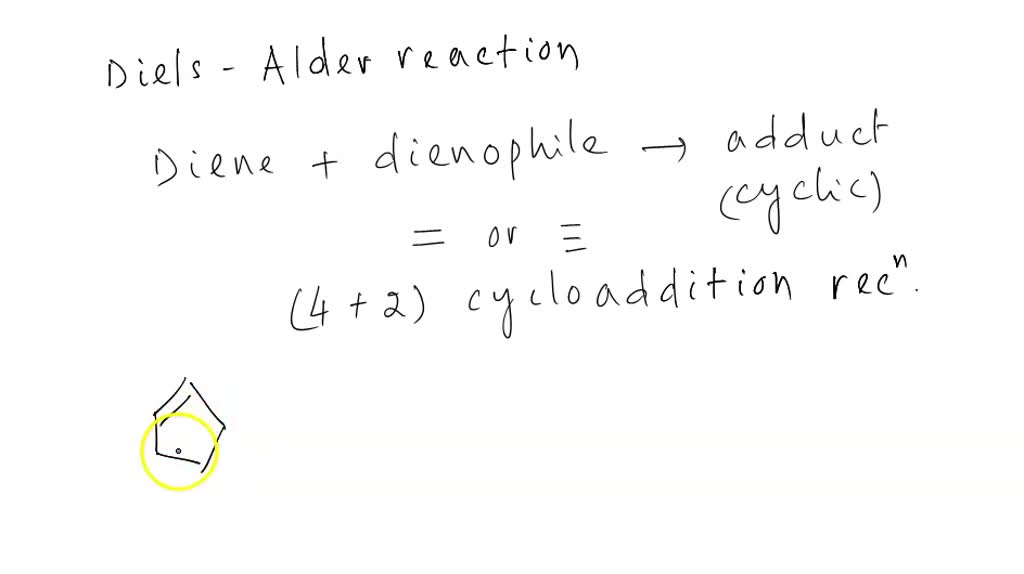 Diels - Alder reaction
Diene + dienophile → adduct
(cyclic)
= or ≡
(4 + 2) cycloaddition recⁿ.